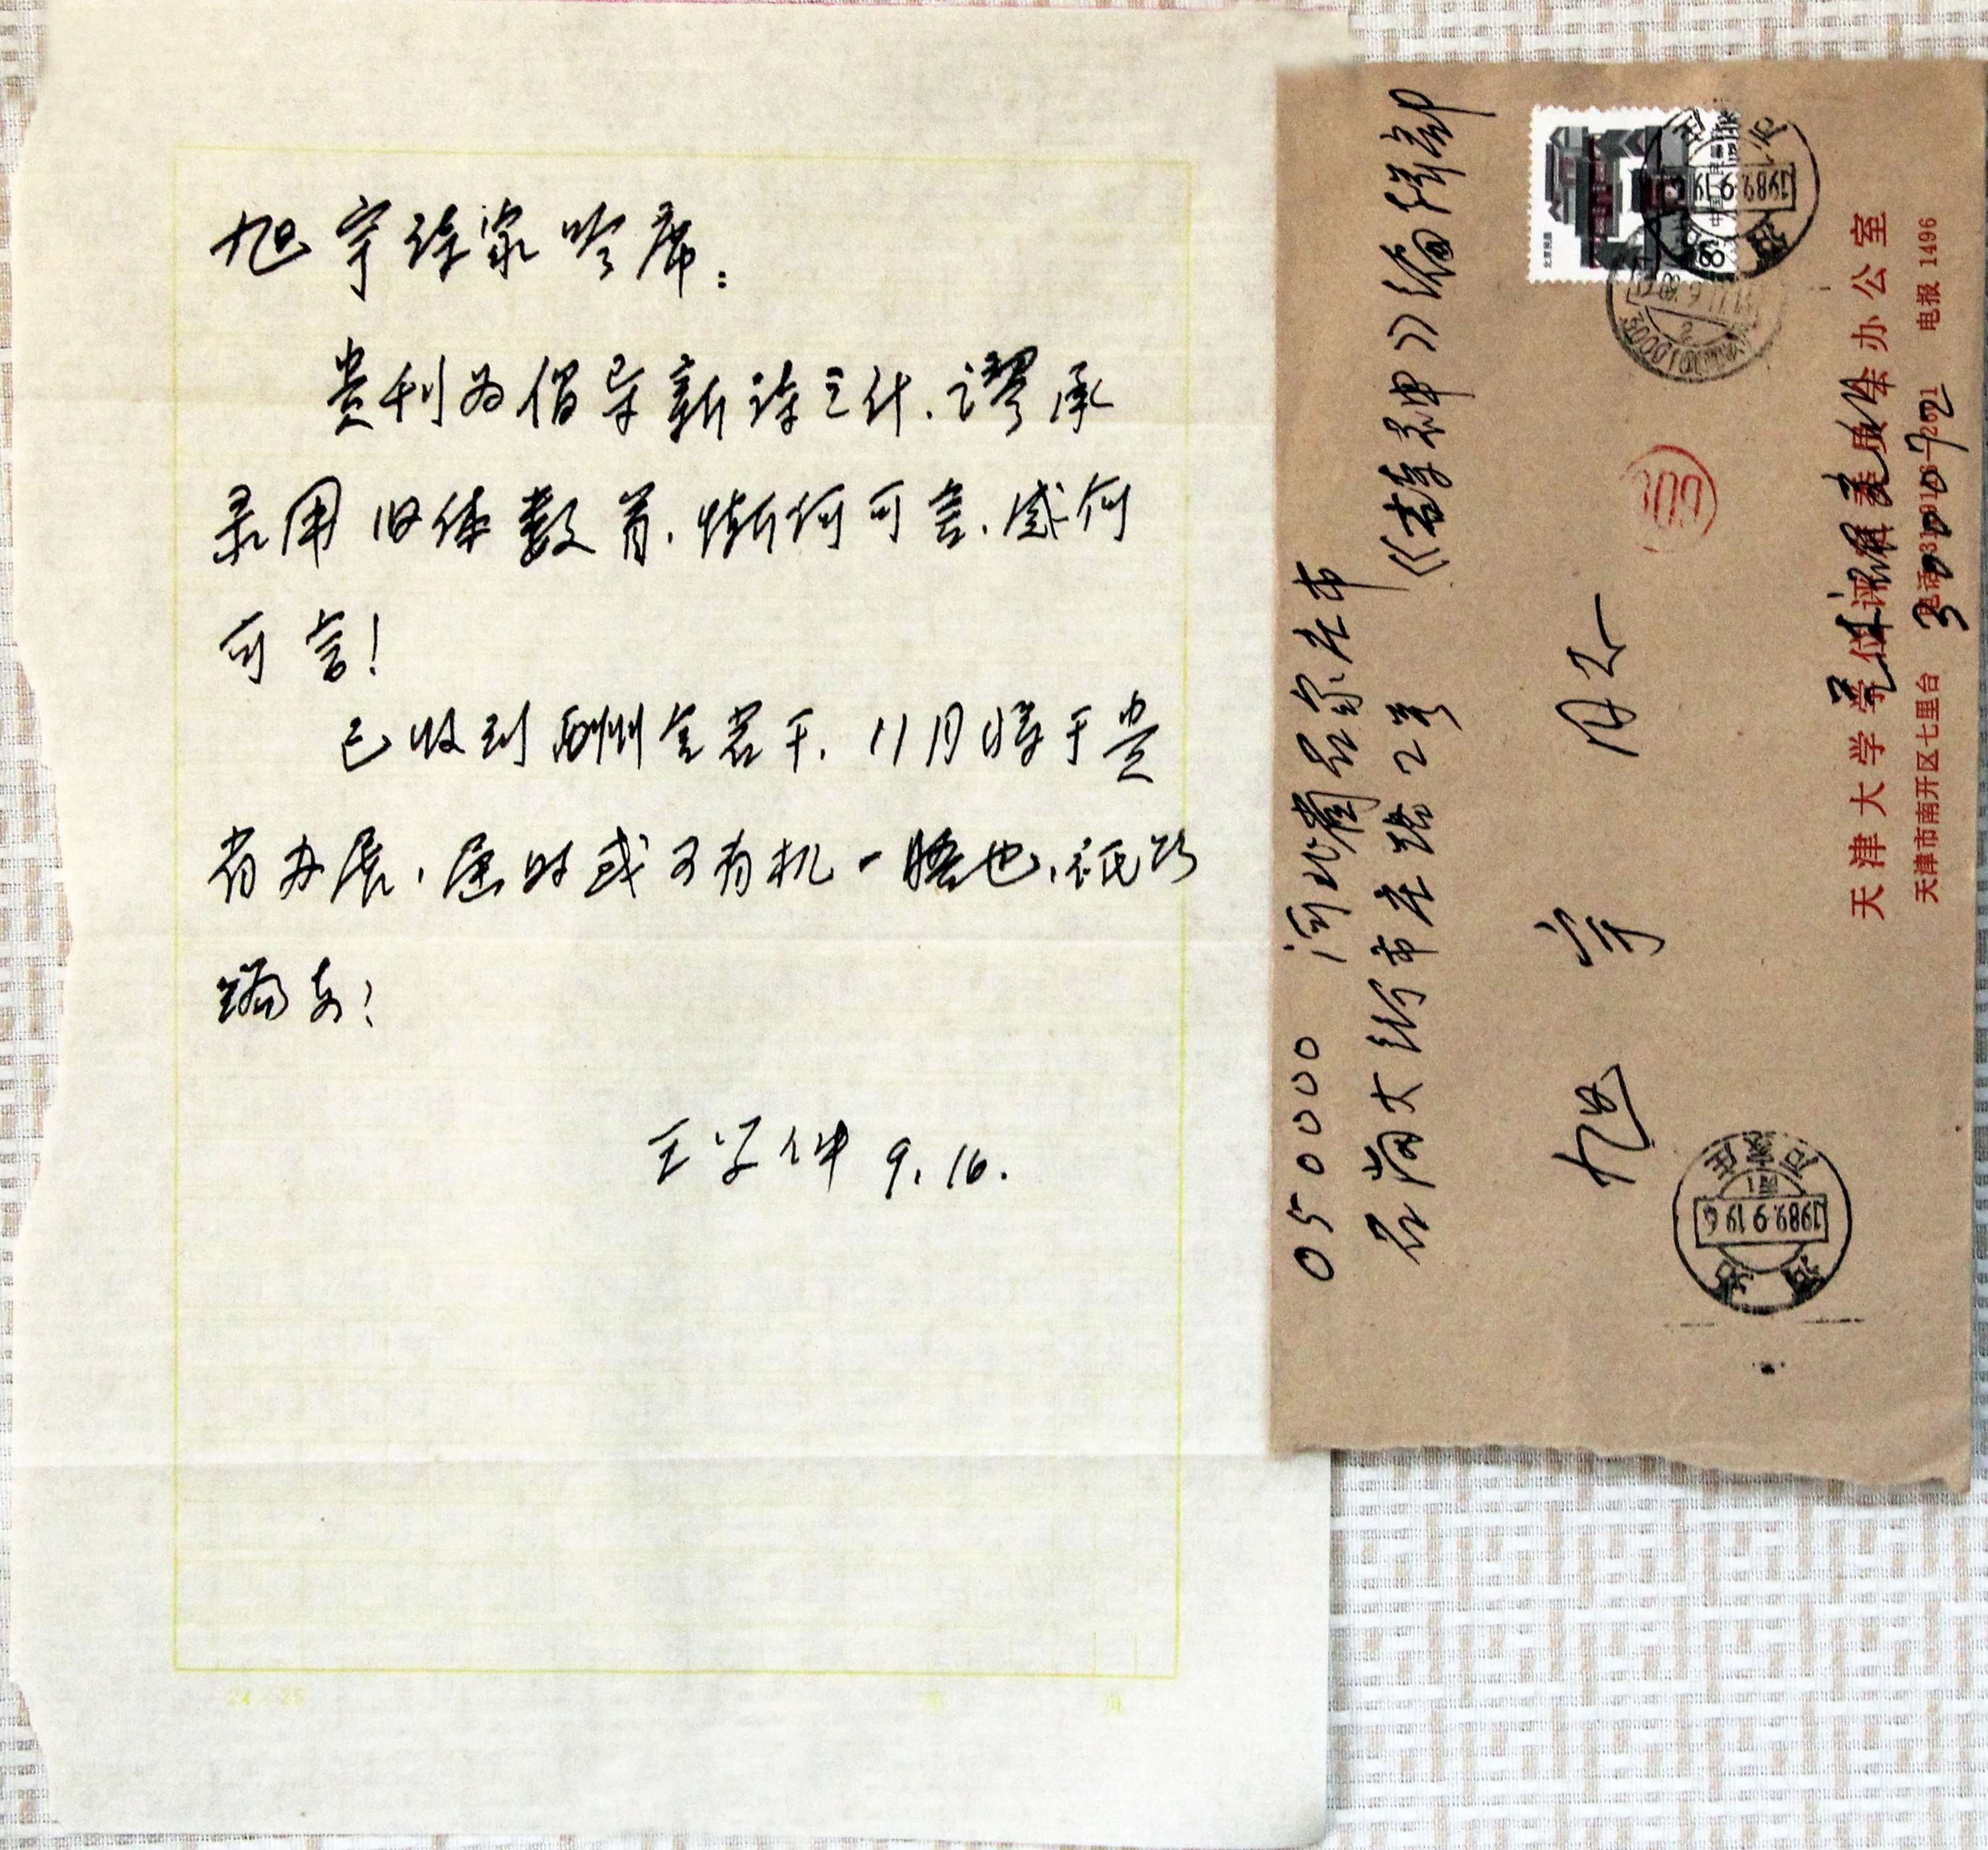 旭宇诗家吟席：
贵刊为倡导新诗之什，谬承
录用旧体数首，惭何可言，感何
可言！
已收到酬金若干，11月将于贵
省办展，届时或可有机一晤也，
王学仲 9.16.
050000 河北省石家庄市
石岗大街市庄路2号
《诗神》编辑部
旭宇
天津大学学位评定委员会办公室
天津市南开区七里台 电报 1496
300072
1989.9.19
1989.9.19.6